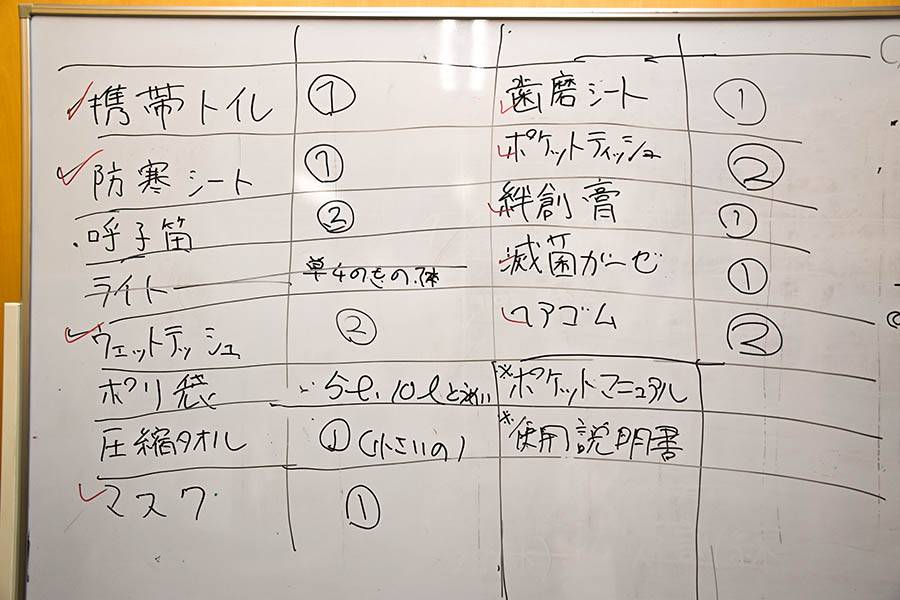 携帯トイレ ①
防寒シート ①
・呼子笛 ②
ライト 単4のもの
ウェットテッシュ ②
ポリ袋 5ℓ、10ℓ
圧縮タオル ① (小さいの)
マスク ①
歯磨シート ①
ポケットティッシュ ②
絆創膏 ①
滅菌ガーゼ ①
ヘアゴム ②
※ポケットマニュアル
※使用説明書